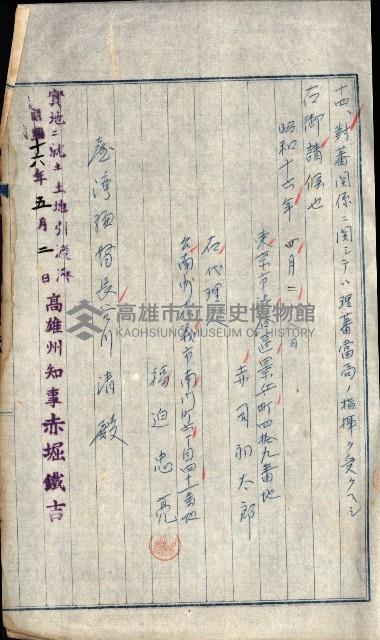 十四、對蕃関係ニ関シテハ理蕃當局ノ指揮ヲ受クヘシ
右御請候也
昭和十六年四月二日
東京市澁谷區景丘町四拾九番地
赤司初太郎
右代理
台南州嘉義市南門町 丁目四十一番地
福迫忠亮
臺灣總督長谷川清殿
實地ニ就キ土地引渡濟
昭和十六年五月二日
高雄州知事赤堀鐵吉
高雄市立歷史博物館
KAOHSIUNG MUSEUM OF HISTORY